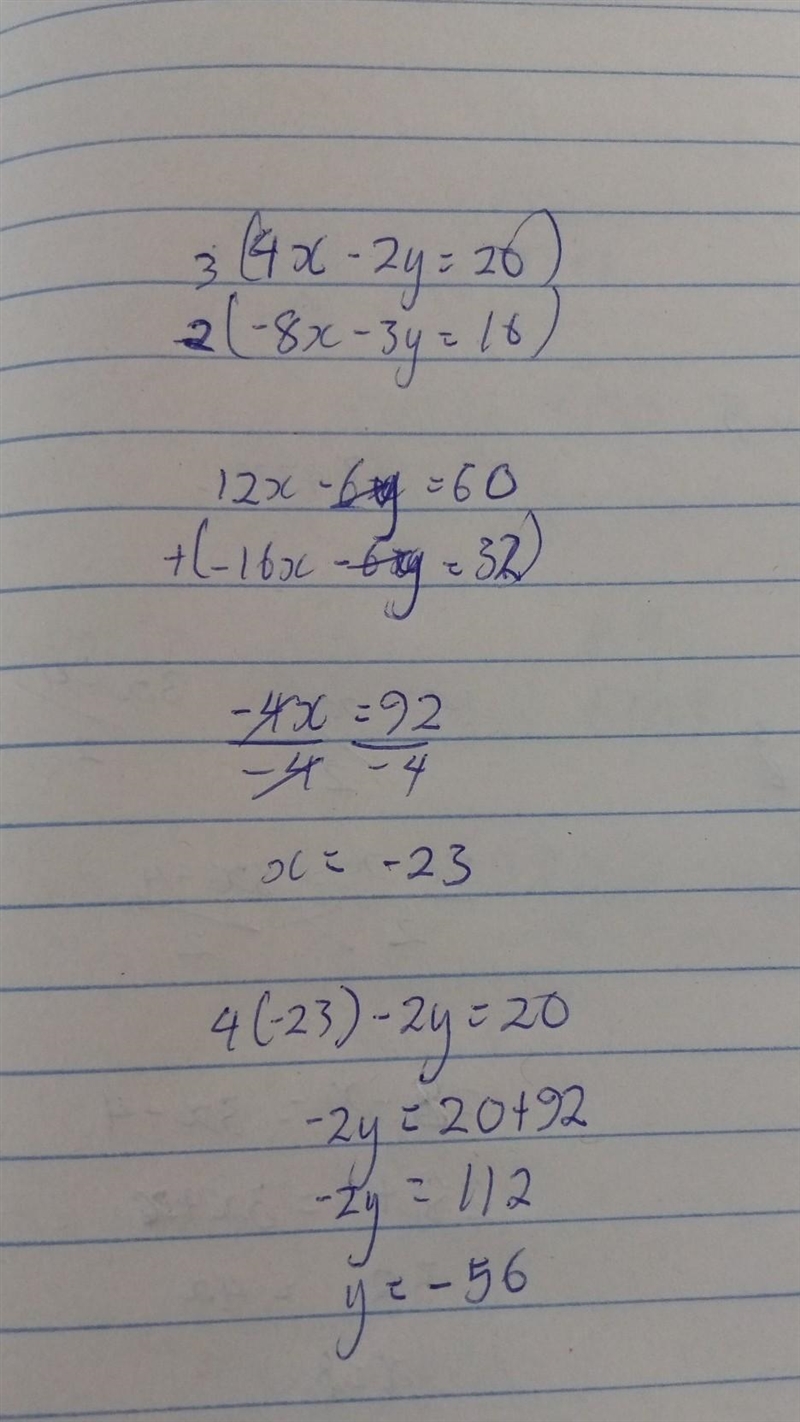 3(4x - 2y = 20)
2(-8x - 3y = 16)
12x - 6y = 60
+(-16x - 6y = 32)
-4x = 92
-4 -4
x = -23
4(-23) - 2y = 20
-2y = 20+92
-2y = 112
y = -56